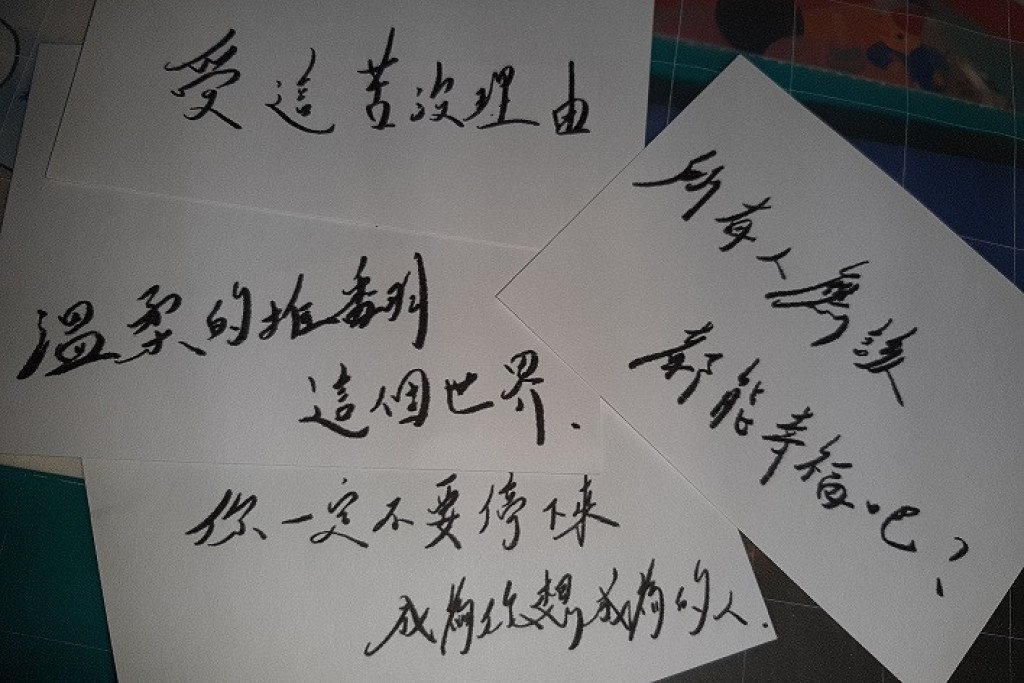 受這苦沒理由
溫柔的推翻
這個世界.
所有人應該
都能幸福吧?
你一定不要停下來
成為你想成為的人.